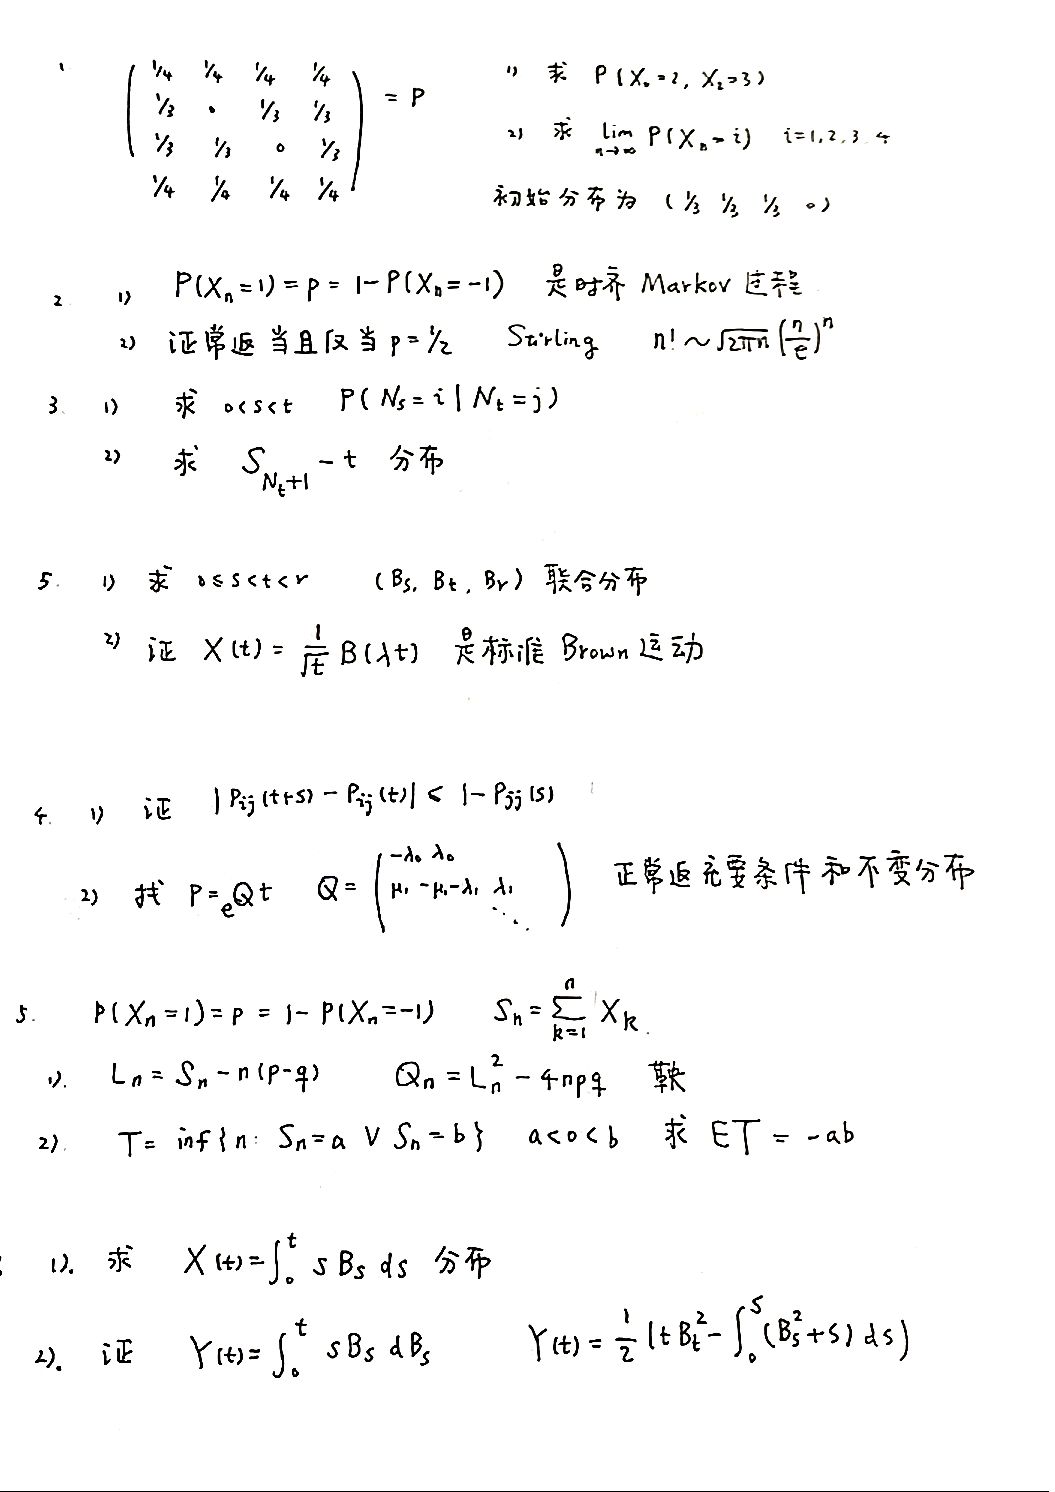 1 (1/4 1/4 1/4 1/4 1) 求 P(X₀=2, X₂=3)
1/3 0 1/3 1/3 = P
1/3 1/3 0 1/3 2) 求 lim n→∞ P(Xₙ=i) i=1,2,3 4
1/4 1/4 1/4 1/4) 初始分布为 (1/3 1/3 1/3 0)
2 1) P(Xₙ=1)=p=1-P(Xₙ=-1) 是时齐 Markov 过程
2) 证常返当且仅当 p=1/2 Stirling n!~√2πn (n/e)ⁿ
3. 1) 求 0<s<t P(Nₛ=i|Nₜ=j)
2) 求 S_{Nₜ+1}-t 分布
5. 1) 求 0≤s<t<r (Bs, Bt, Br) 联合分布
2) 证 X(t)=1/√t B(λt) 是标准 Brown 运动
4. 1) 证 |Pij(t+s)-Pij(t)|< 1-Pjj(s)
2) 找 P=eQt Q=(-λ₀ λ₀ μ₁ -μ₁-λ₁ λ₁ ⋱) 正常返充要条件和不变分布
5. P(Xₙ=1)=p=1-P(Xₙ=-1) Sₙ=∑_{k=1}^{n} X_k.
1). Lₙ=Sₙ-n(p-q) Qₙ=Lₙ²-4npq 鞅
2). T=inf{n: Sₙ=a ∨ Sₙ=b} a<0<b 求 ET=-ab
1). 求 X(t)=∫₀ᵗ s Bs ds 分布
2). 证 Y(t)=∫₀ᵗ sBs dBs Y(t)=1/2(tBt²-∫₀ˢ(Bs²+s)ds)